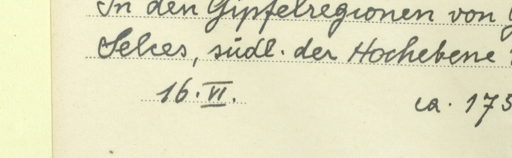 In den Gipfelregionen von
Selces, südl. der Hochebene
16. VI. ca. 175